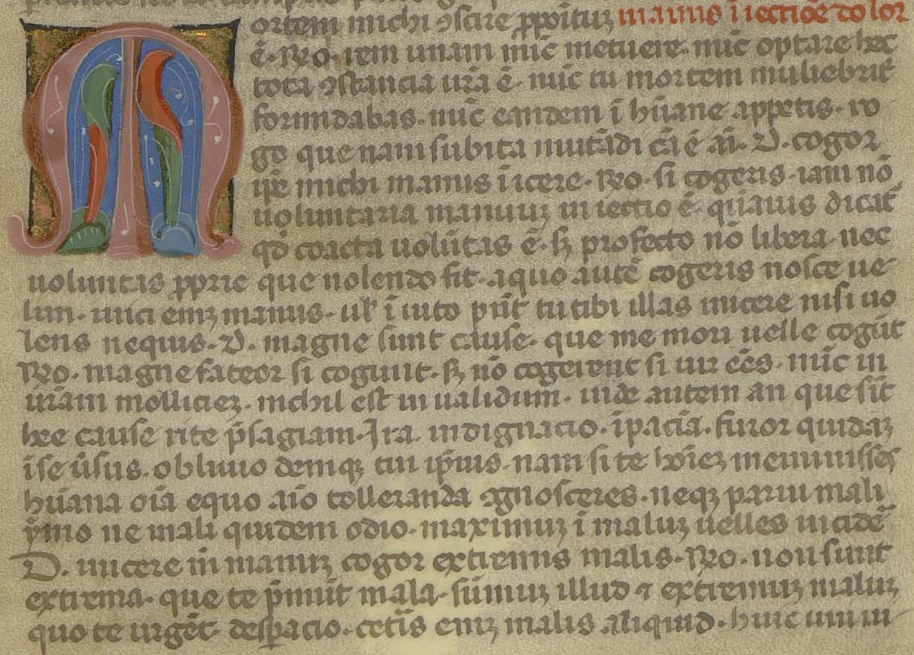 ortem michi ꝯscire ꝓpoituꝫ manus ī iectiōe dolor
ē. Ro. rem unam nūc metuere. nūc optare hec
tota ꝯstancia ur̄a ē. nūc tu mortem muliebrit̄
formidabas. nūc eandem ī hūane appetis. ro
go que nam subita mutādi cā ē aī. D. cogor
ip̄e michi manus ī icere. Ro. si cogeris. iam nō
uoluntaria manuuꝫ in iectio ē. q̄uauis dicat̄
qd̄ coacta uolūtas ē. sꝫ profecto nō libera. nec
uoluntas ꝓprie que nolendo fit. a quo autē cogeris nosce ue
lim. uinci eniꝫ manus. ul̄ ī iuto pn̄t tu tibi illas inicere nisi uo
lens nequis. D. magne sunt cause. que me mori uelle cogūt
Ro. magne fateor si cogunt. sꝫ nō cogerent si uir eēs. nūc in
ur̄am mollicieꝫ. nichil est in ualidum. unde autem an que sīt
hee cause rite p̄sagiam. Ira indignacio. īpaciā. furor quidaꝫ
ī se ūsus. obliuio demqꝫ tui ip̄ius. nam si te hoīeꝫ meminisses
hūana oīa equo aīo colleranda ꝯgnosceres. neqꝫ parui mali
ẏmo ne mali quidem odio. maximuꝫ ī maluꝫ uelles incidē
D. inicere in manuꝫ cogor extremis malis. Ro. non sunt
extrema. que te p̄munt mala. sūmuꝫ illud ⁊ extremuꝫ maluꝫ
quo te urget̄ despacio. cetīs eniꝫ malis aliquid. huic uni ni